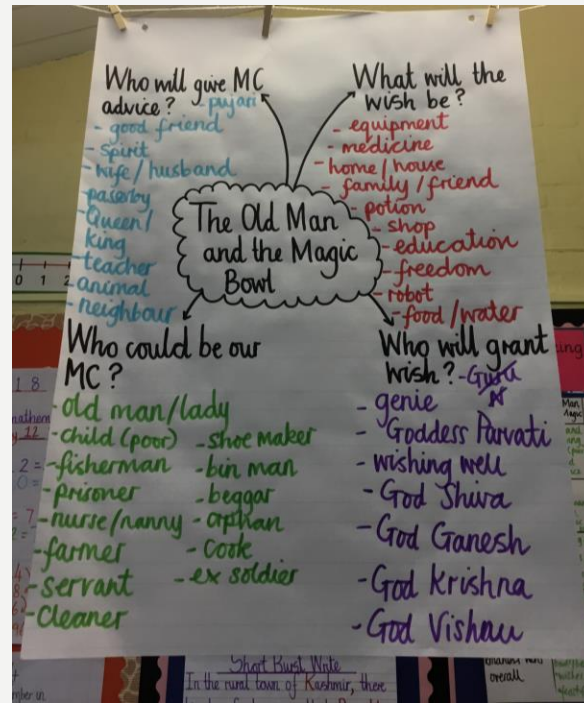 Who will give MC
advice? - pujari
- good friend
- spirit
- wife/husband
passerby
- Queen/
king
- teacher
- animal
- neighbour
What will the
wish be?
- equipment
- medicine
- home/house
- family/friend
- potion
- shop
- education
- freedom
- robot
- food/water
The Old Man
and the Magic
Bowl
Who could be our
MC?
- old man/lady
- child (poor)
- fisherman
- prisoner
- nurse/nanny
- farmer
- servant
- cleaner
- shoe maker
- bin man
- beggar
- orphan
- cook
- ex soldier
Who will grant
wish? - Guru
- genie
- Goddess Parvati
- wishing well
- God Shiva
- God Ganesh
- God Krishna
- God Vishnu
0 1 2
1 8
2 =
0 =
= 7
2 =
Short Burst Write
In the rural town of Kashmir, there
overall